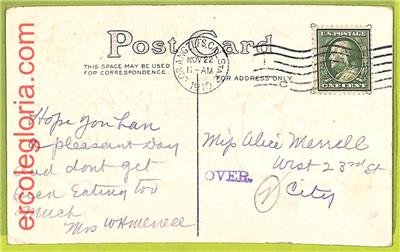 Post Card
THIS SPACE MAY BE USED
FOR CORRESPONDENCE.
FOR ADDRESS ONLY
LOS ANGELES, CAL.
NOV 22
11-AM
1910
U.S. POSTAGE
ONE CENT
Hope you
a pleasant Day
and dont get
Eating too
much
Mrs WH Merrell
Miss Alice Merrell
West 23rd St
City
OVER.
ercolegloria.com